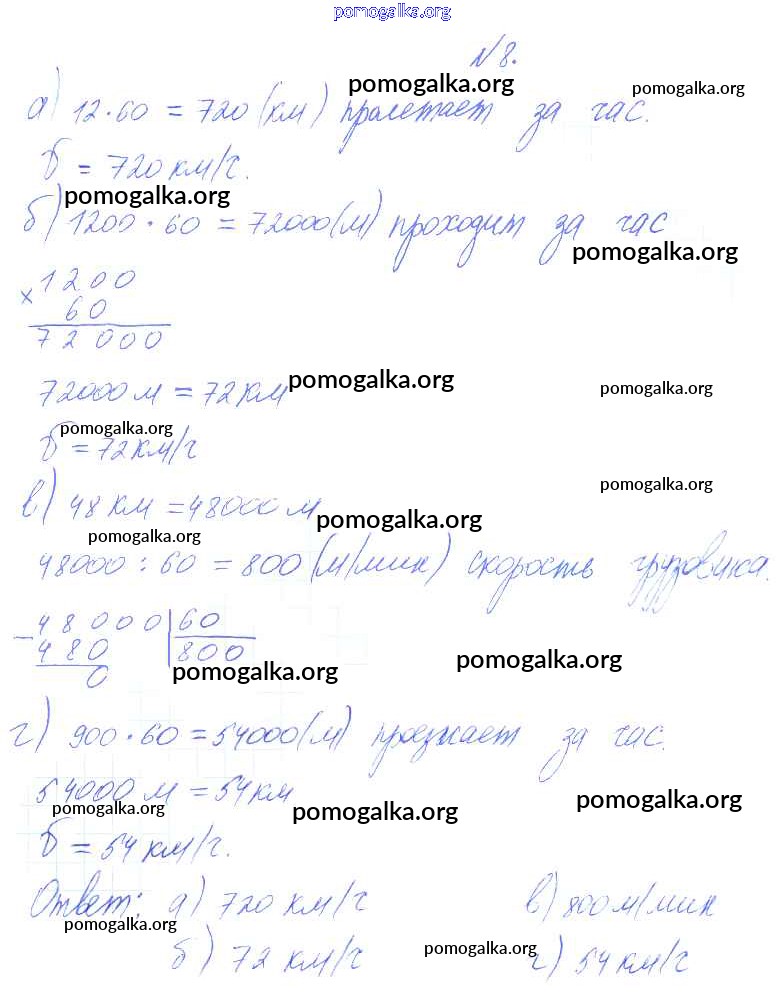 pomogalka.org
№8.
pomogalka.org pomogalka.org
а) 12·60 = 720 (км) пролетает за час.
V = 720 км/ч.
pomogalka.org
б) 1200·60 = 72000 (м) проходит за час
pomogalka.org
× 1200
60
72000
pomogalka.org pomogalka.org
72000 м = 72 км
pomogalka.org
V = 72 км/ч
pomogalka.org
в) 48 км = 48000 м
pomogalka.org
pomogalka.org
48000 : 60 = 800 (м/мин) скорость грузовика.
− 48000 | 60
480 | 800
0
pomogalka.org pomogalka.org
г) 900·60 = 54000 (м) проезжает за час.
54000 м = 54 км
pomogalka.org pomogalka.org pomogalka.org
V = 54 км/г.
Ответ: а) 720 км/г в) 800 м/мин
pomogalka.org
б) 72 км/г г) 54 км/г
pomogalka.org